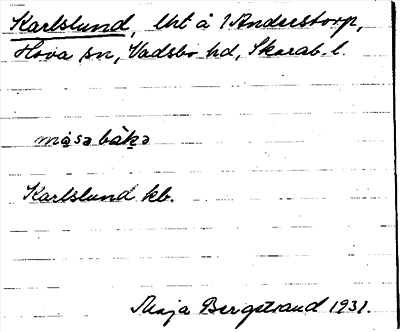 Karlslund, lht å 1 Anderstorp,
Hova sn, Vadsbo hd, Skarab. l.
måsa bàka
Karlslund kb.
Maja Bergstrand 1931.